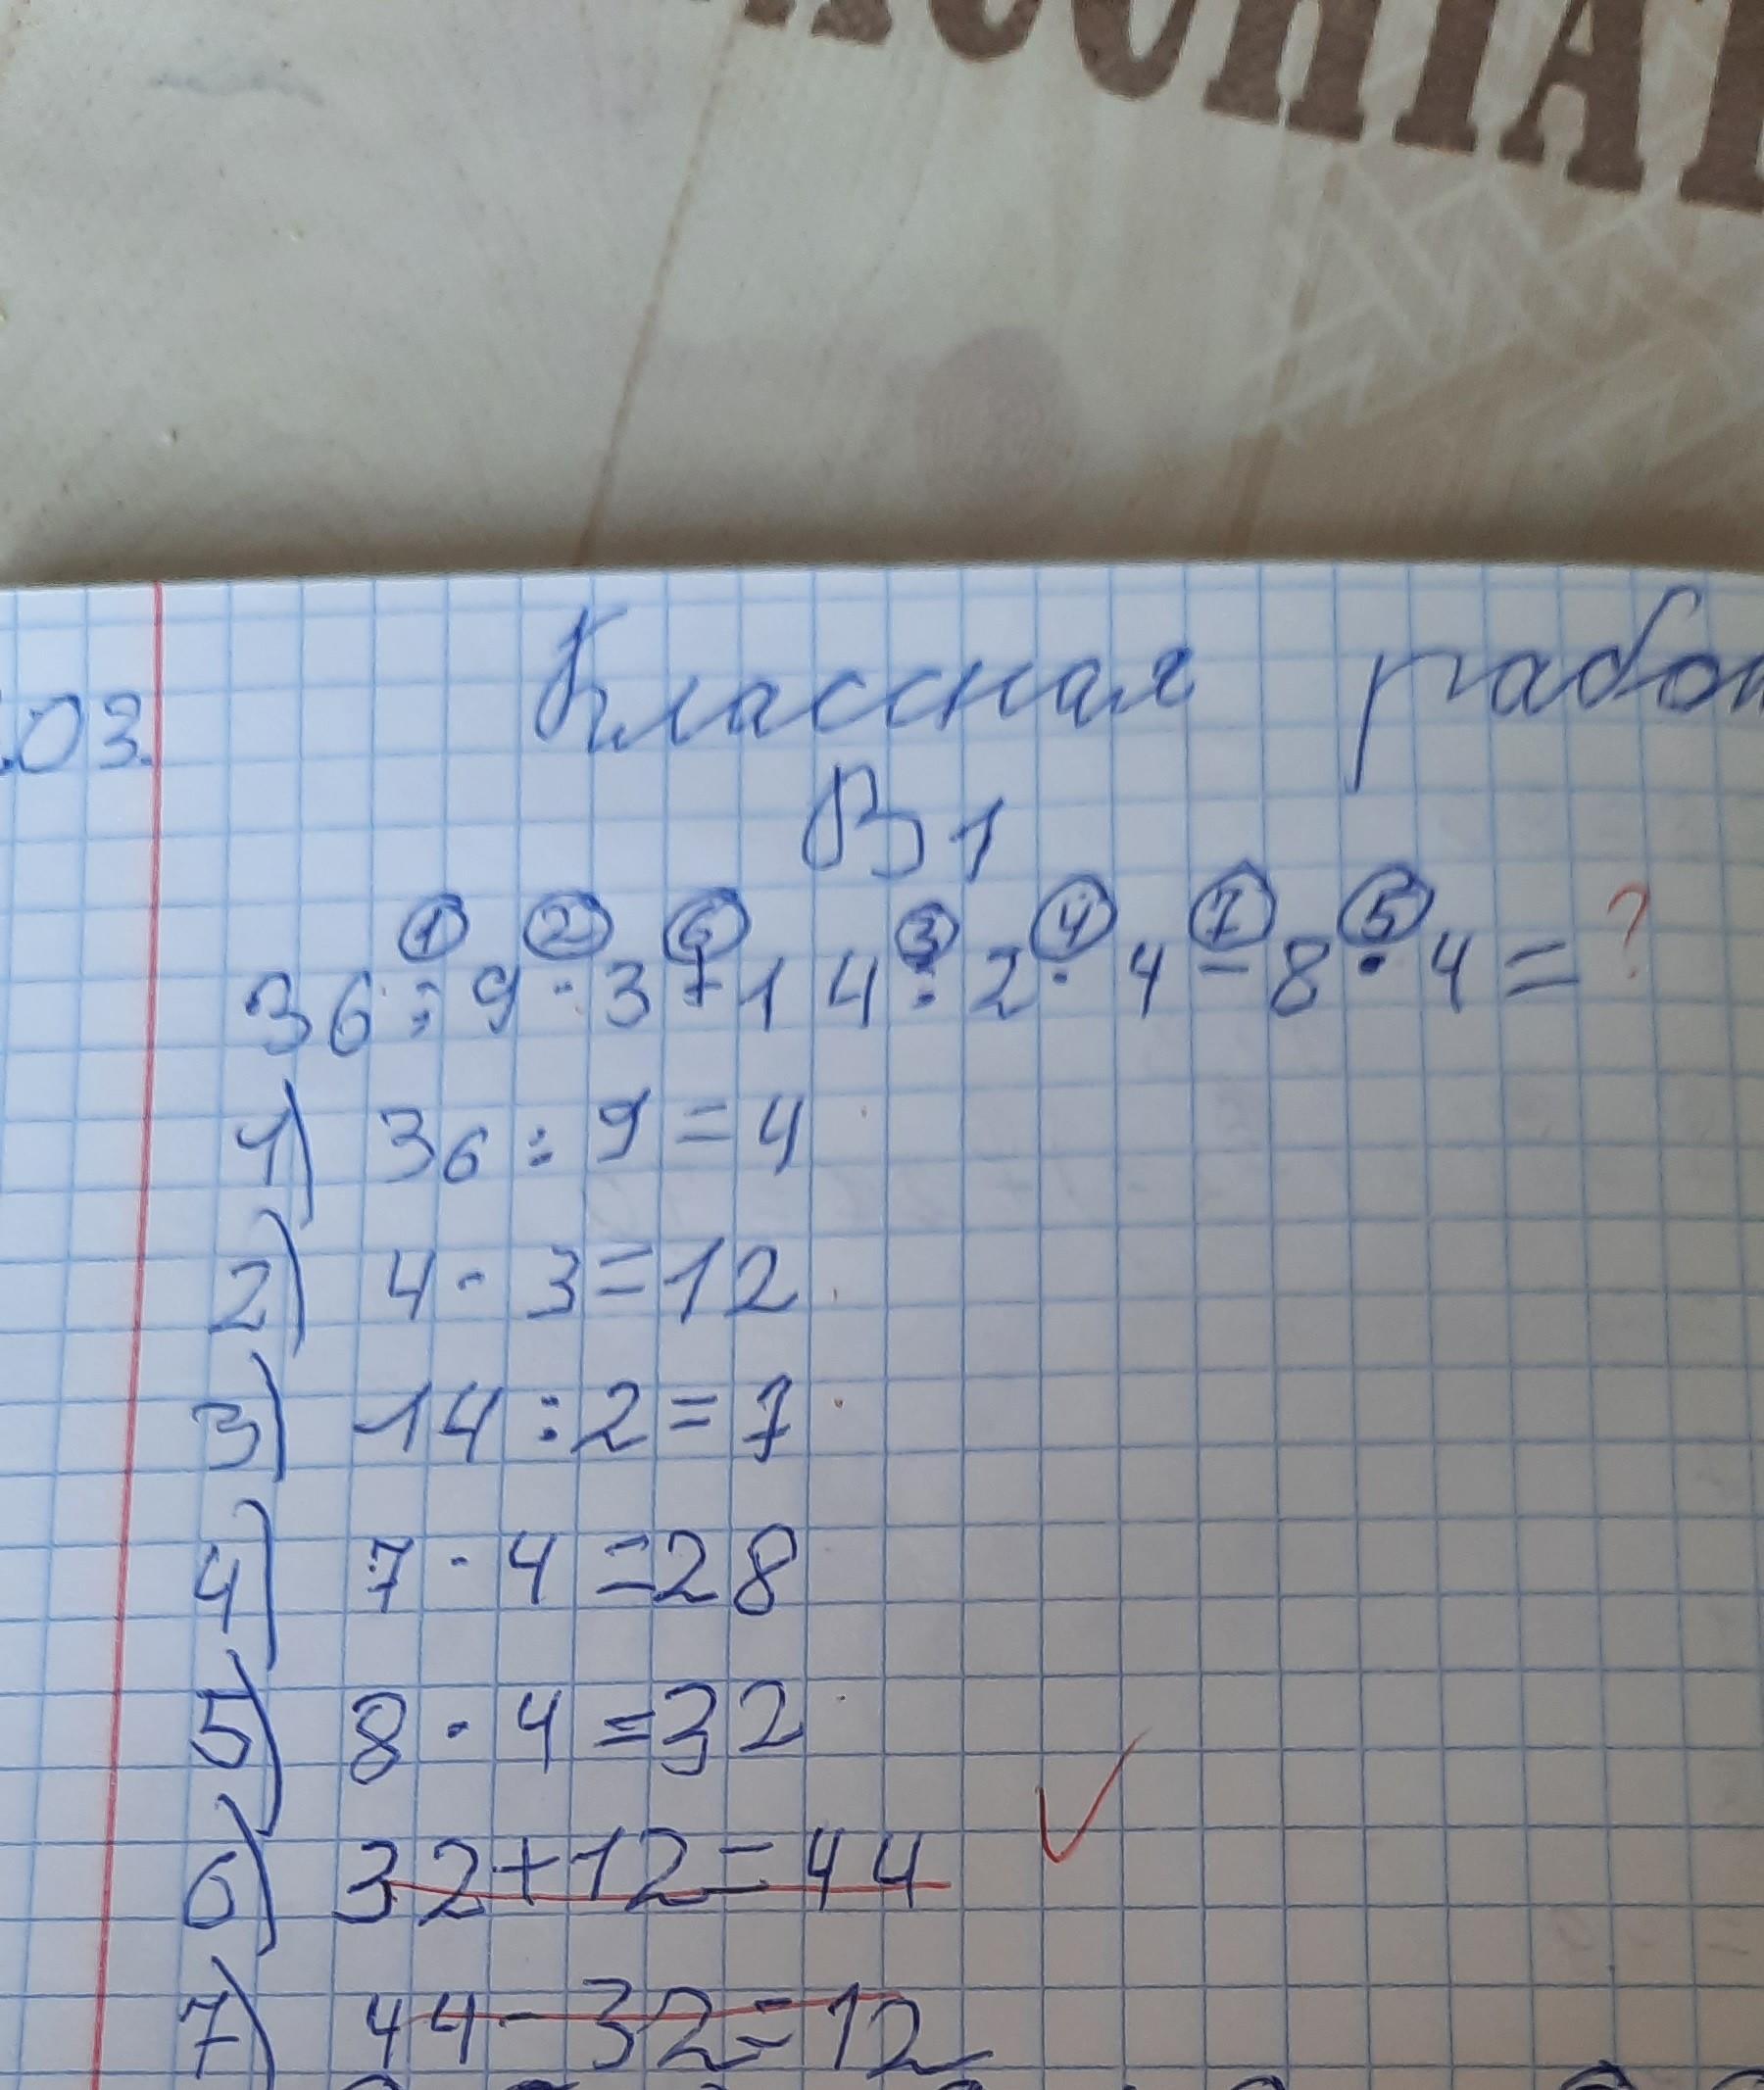 .03.
Классная рабо
В 1
① ② ⑥ ③ ④ ⑦ ⑤
36 : 9 · 3 + 14 : 2 · 4 - 8 · 4 = ?
1) 36 : 9 = 4
2) 4 · 3 = 12
3) 14 : 2 = 7
4) 7 · 4 = 28
5) 8 · 4 = 32
6) 32 + 12 = 44
7) 44 - 32 = 12